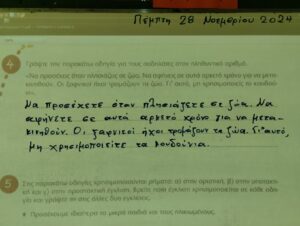 Πέμπτη 28 Νοεμβρίου 2024
4 Γράψτε την παρακάτω οδηγία για τους ποδηλάτες στον πληθυντικό αριθμό.
«Να προσέχεις όταν πλησιάζεις σε ζώα. Να αφήνεις σε αυτά αρκετό χρόνο για να μετα-
κινηθούν. Οι ξαφνικοί ήχοι τρομάζουν τα ζώα. Γι' αυτό, μη χρησιμοποιείς το κουδού-
νι».
Να προσέχετε όταν πλησιάζετε σε ζώα. Να
αφήνετε σε αυτά αρκετό χρόνο για να μετα-
κινηθούν. Οι ξαφνικοί ήχοι τρομάζουν τα ζώα. Γι' αυτό,
μη χρησιμοποιείτε τα κουδούνια.
5 Στις παρακάτω οδηγίες χρησιμοποιούνται ρήματα: α) στην οριστική, β) στην υποτακτι-
κή και γ) στην προστακτική έγκλιση. Βρείτε ποια έγκλιση χρησιμοποιείται σε κάθε οδη-
γία και γράψτε τη στις άλλες δυο εγκλίσεις.
Προσέχουμε ιδιαίτερα τα μικρά παιδιά και τους ηλικιωμένους.